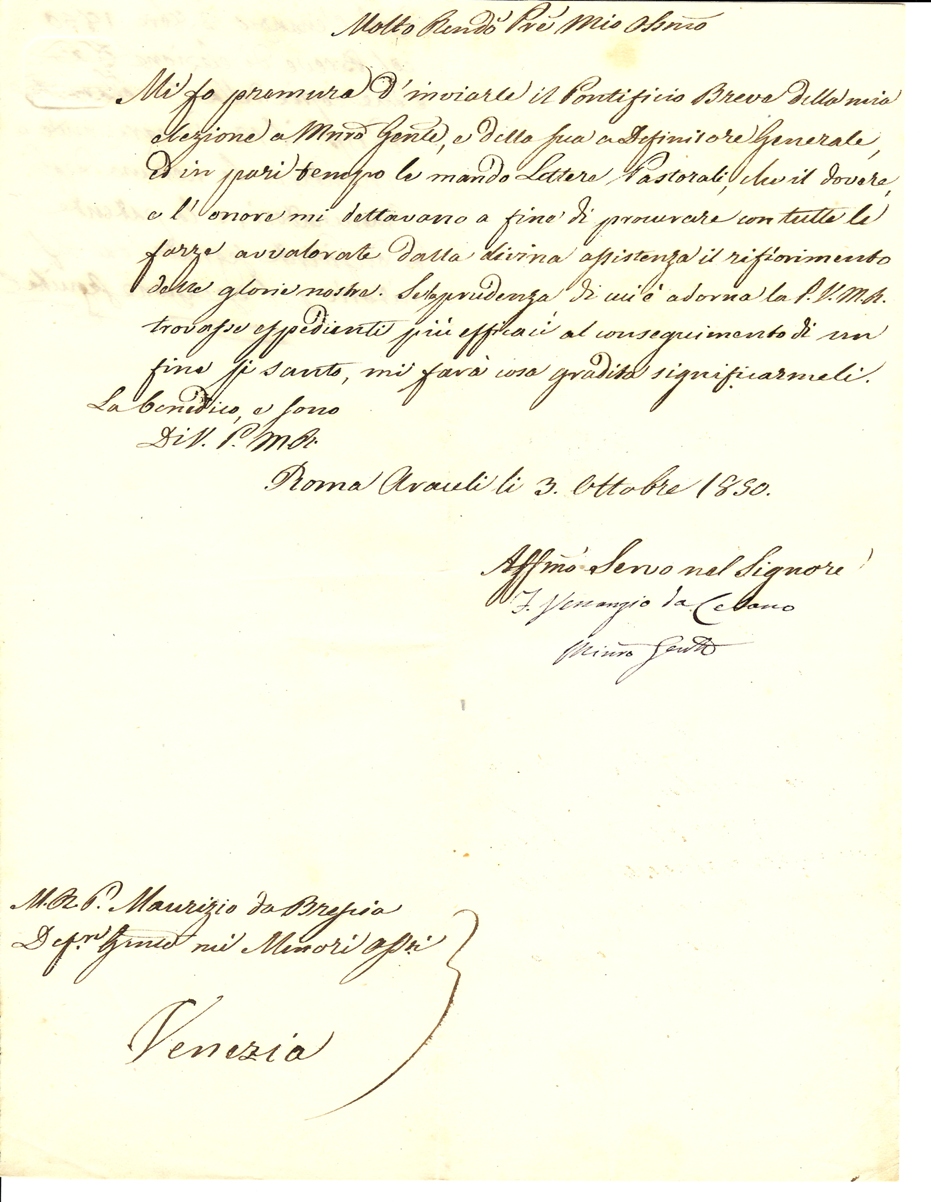 Molto Rendo Pre Mio Ossmo
Mi fo premura d'inviarle il Pontificio Breve della mia
elezione a Mnro Genle, e della sua a Definitore Generale,
ed in pari tempo le mando Lettere Pastorali, che il dovere,
e l'onore mi dettavano a fine di procurare con tutte le
forze avvalorate dalla divina assistenza il rifiorimento
delle glorie nostre. Se la prudenza di cui è adorna la P. V. M. R.
trovasse espedienti più efficaci al conseguimento di un
fine sì santo, mi farà cosa gradita significarmeli.
La benedico, e sono
Di V. P. M. R.
Roma Araceli li 3. Ottobre 1850.
Affmo Servo nel Signore
F. Venanzio da Celano
Minro Genle
M. R. P. Maurizio da Brescia
Defre Genle nei Minori Ossti
Venezia